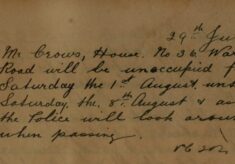 29th Ju
Mr Crows, House. No 36 Wa
Road will be unoccupied f
Saturday the 1st August, un
Saturday, the, 8th August &
the Police will look arou
when passing.